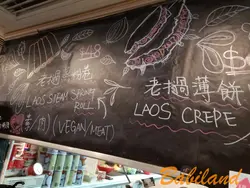 48
老撾粉卷
LAOS STEAM SPRING
ROLL
素/肉 (VEGAN/MEAT)
老撾薄餅
LAOS CREPE
$
Bubiland